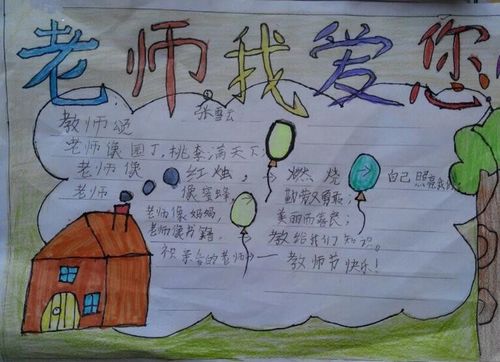 老师我爱您
张雪云
教师颂
老师像园丁,桃李满天下,
老师像红烛,燃烧自己照亮我们
老师像蜜蜂,勤劳又勇敢;
老师像妈妈,美丽而善良;
老师像书籍,教给我们知识。
祝亲爱的老师——教师节快乐!